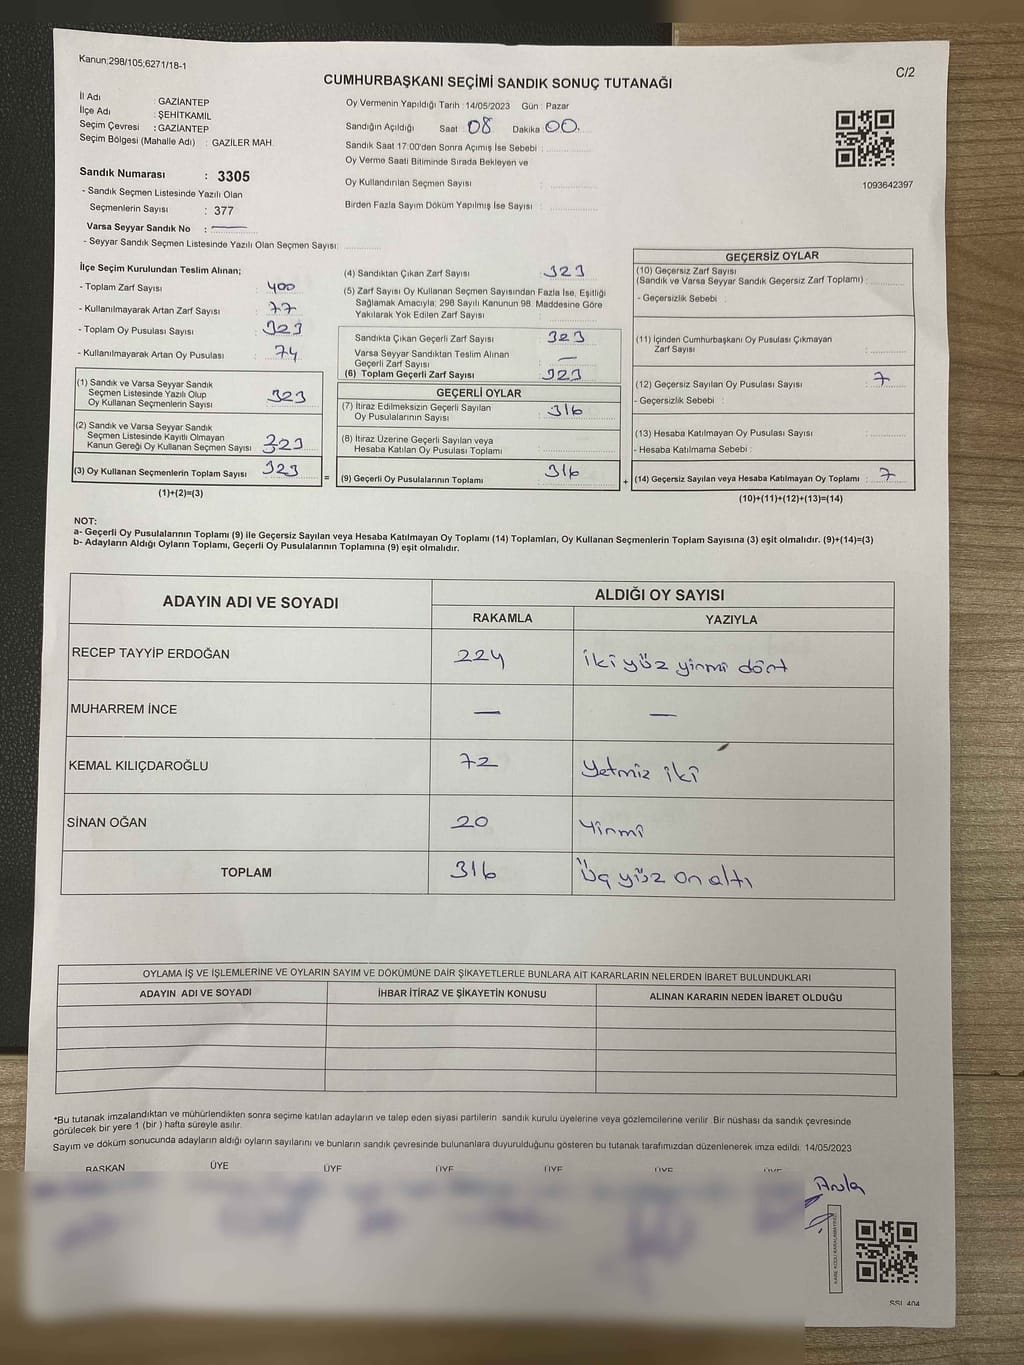 Kanun;298/105;6271/18-1
C/2
CUMHURBAŞKANI SEÇİMİ SANDIK SONUÇ TUTANAĞI
İl Adı : GAZİANTEP
İlçe Adı : ŞEHİTKAMİL
Seçim Çevresi : GAZİANTEP
Seçim Bölgesi (Mahalle Adı) : GAZİLER MAH.
Oy Vermenin Yapıldığı Tarih : 14/05/2023 Gün : Pazar
Sandığın Açıldığı Saat : 08 Dakika : 00.
Sandık Saat 17:00'den Sonra Açımış İse Sebebi :
Oy Verme Saati Bitiminde Sırada Bekleyen ve
Oy Kullandırılan Seçmen Sayısı :
Birden Fazla Sayım Döküm Yapılmış İse Sayısı :
1093642397
Sandık Numarası : 3305
- Sandık Seçmen Listesinde Yazılı Olan
Seçmenlerin Sayısı : 377
Varsa Seyyar Sandık No : —
- Seyyar Sandık Seçmen Listesinde Yazılı Olan Seçmen Sayısı:
İlçe Seçim Kurulundan Teslim Alınan;
- Toplam Zarf Sayısı : 400
- Kullanılmayarak Artan Zarf Sayısı : 77
- Toplam Oy Pusulası Sayısı : 323
- Kullanılmayarak Artan Oy Pusulası : 74
(1) Sandık ve Varsa Seyyar Sandık
Seçmen Listesinde Yazılı Olup
Oy Kullanan Seçmenlerin Sayısı : 323
(2) Sandık ve Varsa Seyyar Sandık
Seçmen Listesinde Kayıtlı Olmayan
Kanun Gereği Oy Kullanan Seçmen Sayısı : 323
(3) Oy Kullanan Seçmenlerin Toplam Sayısı : 323
(1)+(2)=(3)
(4) Sandıktan Çıkan Zarf Sayısı : 323
(5) Zarf Sayısı Oy Kullanan Seçmen Sayısından Fazla İse, Eşitliği
Sağlamak Amacıyla; 298 Sayılı Kanunun 98. Maddesine Göre
Yakılarak Yok Edilen Zarf Sayısı :
Sandıkta Çıkan Geçerli Zarf Sayısı : 323
Varsa Seyyar Sandıktan Teslim Alınan
Geçerli Zarf Sayısı : —
(6) Toplam Geçerli Zarf Sayısı : 323
GEÇERLİ OYLAR
(7) İtiraz Edilmeksizin Geçerli Sayılan
Oy Pusulalarının Sayısı : 316
(8) İtiraz Üzerine Geçerli Sayılan veya
Hesaba Katılan Oy Pusulası Toplamı :
= (9) Geçerli Oy Pusulalarının Toplamı : 316 +
GEÇERSİZ OYLAR
(10) Geçersiz Zarf Sayısı
(Sandık ve Varsa Seyyar Sandık Geçersiz Zarf Toplamı) :
- Geçersizlik Sebebi :
(11) İçinden Cumhurbaşkanı Oy Pusulası Çıkmayan
Zarf Sayısı :
(12) Geçersiz Sayılan Oy Pusulası Sayısı : 7
- Geçersizlik Sebebi :
(13) Hesaba Katılmayan Oy Pusulası Sayısı :
- Hesaba Katılmama Sebebi :
(14) Geçersiz Sayılan veya Hesaba Katılmayan Oy Toplamı : 7
(10)+(11)+(12)+(13)=(14)
NOT:
a- Geçerli Oy Pusulalarının Toplamı (9) ile Geçersiz Sayılan veya Hesaba Katılmayan Oy Toplamı (14) Toplamları, Oy Kullanan Seçmenlerin Toplam Sayısına (3) eşit olmalıdır. (9)+(14)=(3)
b- Adayların Aldığı Oyların Toplamı, Geçerli Oy Pusulalarının Toplamına (9) eşit olmalıdır.
ADAYIN ADI VE SOYADI
ALDIĞI OY SAYISI
RAKAMLA YAZIYLA
RECEP TAYYİP ERDOĞAN 224 iki yüz yirmi dört
MUHARREM İNCE — —
KEMAL KILIÇDAROĞLU 72 Yetmiz iki
SİNAN OĞAN 20 Yirmi
TOPLAM 316 Üç yüz on altı
OYLAMA İŞ VE İŞLEMLERİNE VE OYLARIN SAYIM VE DÖKÜMÜNE DAİR ŞİKAYETLERLE BUNLARA AİT KARARLARIN NELERDEN İBARET BULUNDUKLARI
ADAYIN ADI VE SOYADI İHBAR İTİRAZ VE ŞİKAYETİN KONUSU ALINAN KARARIN NEDEN İBARET OLDUĞU
*Bu tutanak imzalandıktan ve mühürlendikten sonra seçime katılan adayların ve talep eden siyasi partilerin sandık kurulu üyelerine veya gözlemcilerine verilir. Bir nüshası da sandık çevresinde
görülecek bir yere 1 (bir ) hafta süreyle asılır.
Sayım ve döküm sonucunda adayların aldığı oyların sayılarını ve bunların sandık çevresinde bulunanlara duyurulduğunu gösteren bu tutanak tarafımızdan düzenlenerek imza edildi. 14/05/2023
BAŞKAN ÜYE ÜYE ÜYE ÜYE ÜYE ÜYE